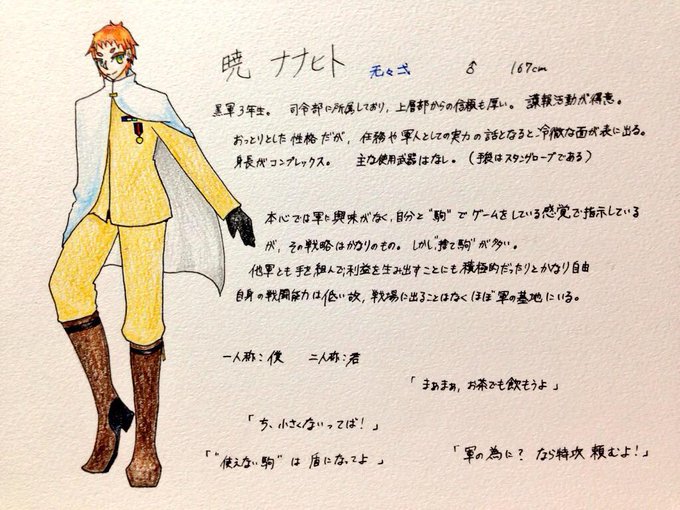 暁 ナナヒト 无々弍 ♂ 167cm
黒軍3年生。 司令部に所属しており、上層部からの信頼も厚い。 諜報活動が得意。
おっとりとした性格だが、任務や軍人としての実力の話となると、冷徹な面が表に出る。
身長がコンプレックス。 主な使用武器はなし。(手袋はスタングローブである)
本心では軍に興味がなく、自分と"駒"でゲームをしている感覚で指示している
が、その戦略はかなりのもの。しかし"捨て駒"が多い。
他軍とも手を組んで、利益を生み出すことにも積極的だったりとかなり自由
自身の戦闘能力は低い故、戦場に出ることはなくほぼ軍の基地にいる。
一人称:僕 二人称:君
「まぁまぁ、お茶でも飲もうよ」
「ち、小さくないってば!」
「"使えない駒"は 盾になってよ」
「軍の為に? なら特攻 頼むよ!」